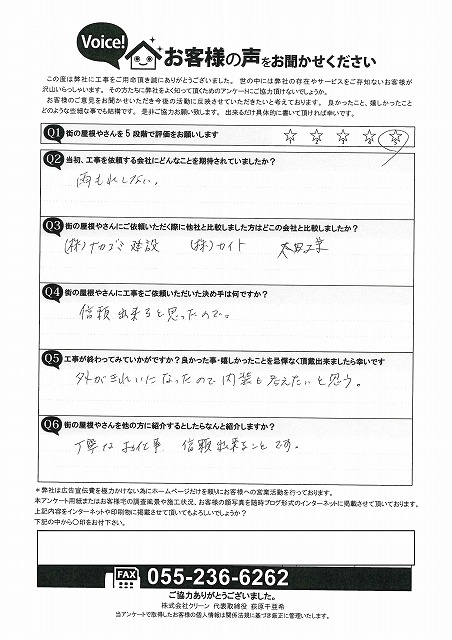 Voice!
お客様の声をお聞かせください
この度は弊社に工事をご用命頂き誠にありがとうございました。世の中には弊社の存在やサービスをご存知ないお客様が
沢山いらっしゃいます。その方たちに弊社をよく知って頂くためのアンケートにご協力頂けないでしょうか。
お客様のご意見をお聞かせいただき今後の活動に反映させていただきたいと考えております。良かったこと、嬉しかったこと
どのような些細な事でも結構です。是非ご協力お願い致します。出来るだけ具体的に書いて頂ければ幸いです。
Q1 街の屋根やさんを5段階で評価をお願いします ☆ ☆ ☆ ☆ ☆
Q2 当初、工事を依頼する会社にどんなことを期待されていましたか?
雨もれしない。
Q3 街の屋根やさんにご依頼いただく際に他社と比較しました方はどこの会社と比較しましたか?
(株)ナカゴミ建設 (株)カイト 太田工業
Q4 街の屋根やさんに工事をご依頼いただいた決め手は何ですか?
信頼出来ると思ったので。
Q5 工事が終わってみていかがですか?良かった事・嬉しかったことを忌憚なく頂戴出来ましたら幸いです
外がきれいになったので内装も考えたいと思う。
Q6 街の屋根やさんを他の方に紹介するとしたらなんと紹介しますか?
丁寧なお仕事 信頼出来ることです。
*弊社は広告宣伝費を極力かけない為にホームページだけを頼りにお客様への営業活動を行っております。
本アンケート用紙またはお客様宅の調査風景や施工状況、お客様の顔写真を随時ブログ形式のインターネットに掲載させて頂いております。
上記内容をインターネットや印刷物に掲載させて頂いてもよろしいでしょうか?
下記の中から○印をお付下さい。
FAX 055-236-6262
ご協力ありがとうございました。
株式会社クリーン 代表取締役 荻原千亜希
当アンケートで取得したお客様の個人情報は関係法規に基づき厳正に管理いたします。